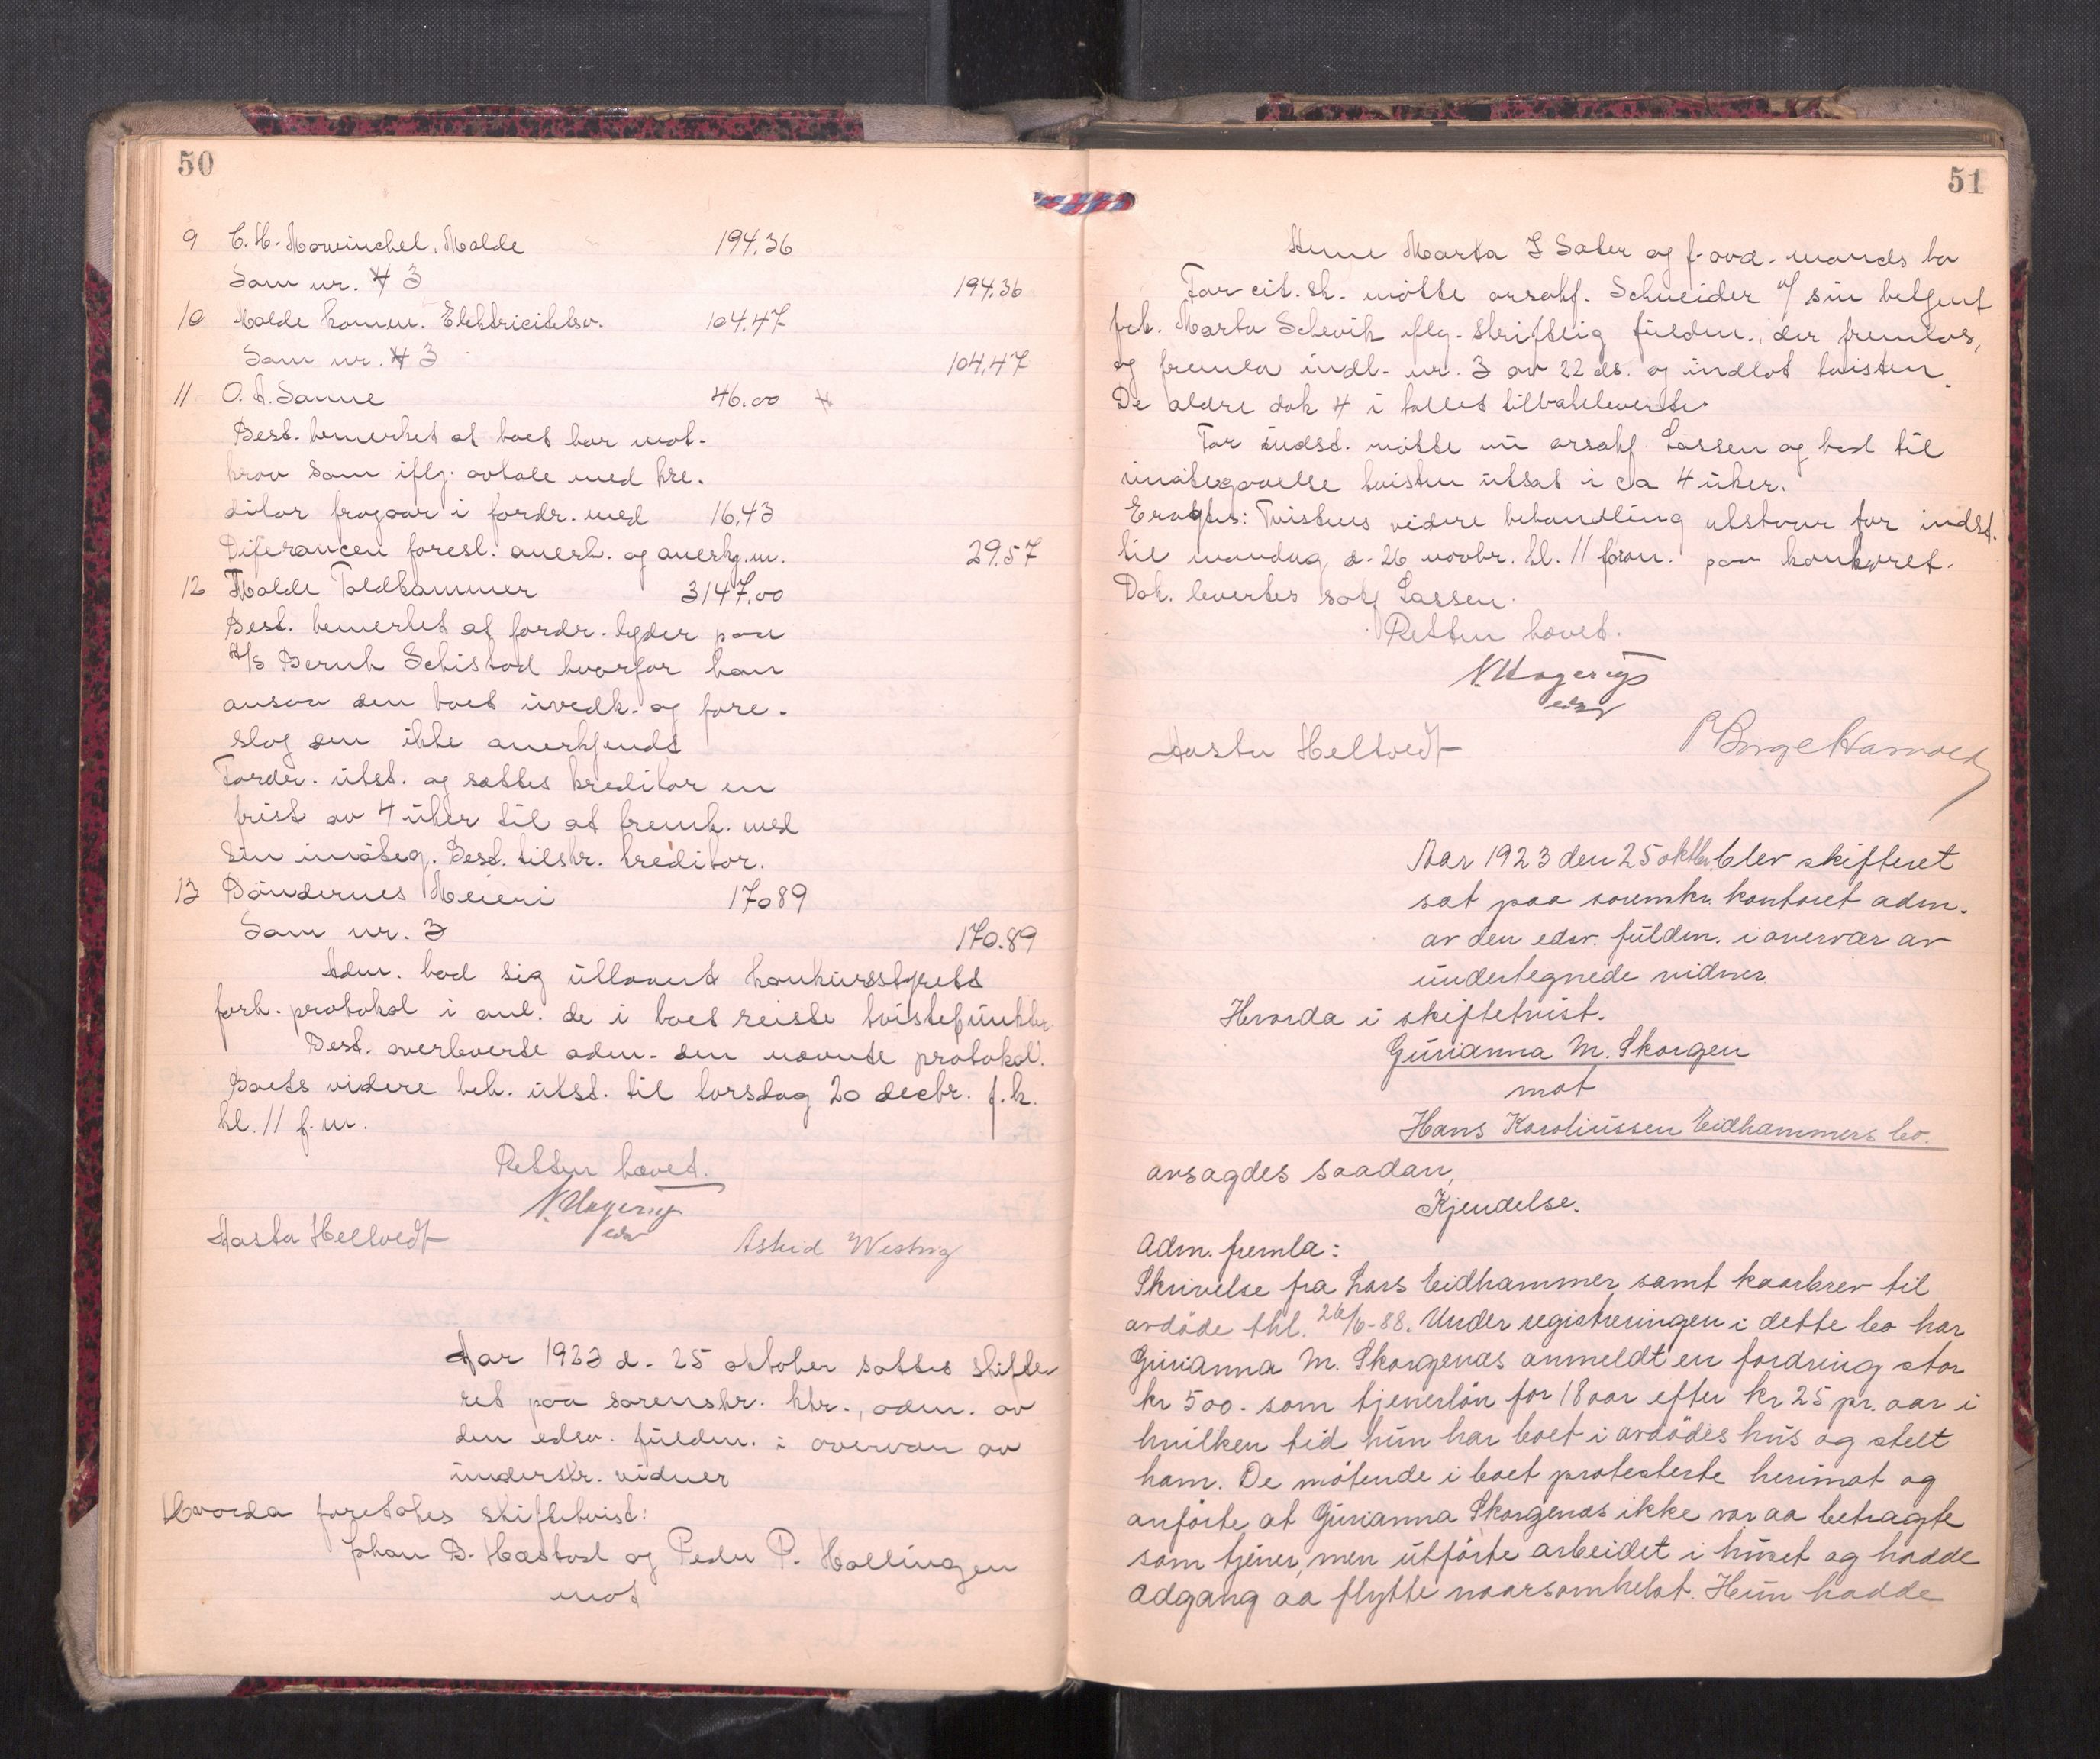 50
9 C. H. Mowinckel, Molde 194.36
Som nr. 3 194.36
10 Molde komm. Elektricitetsv. 104.47
Som nr. 3 104.47
11 O. A. Sanne 46.00
Best. bemerket at boet har mot-
krav som iflg. avtale med kre-
ditor fragaar i fordr. med 16.43
Diferancen foresl. anerk. og anerkj.m. 29.57
12 Molde Toldkammer 3147.00
Best. bemerket at fordr. lyder paa
A/S Bernh Schistad hvorfor han
ansaa den boet uvedk. og fore-
slog den ikke anerkjendt
Fordr. utst. og sattes kreditor en
frist av 4 uker til at fremk. med
sin imøteg. Best. tilskr. kreditor.
13 Bøndernes Meieri 170.89
Som nr. 3 170.89
Adm. bad sig utlaant konkursstyrets
forh. protokol i anl. de i boet reiste tvistepunkter
Best. overleverte adm. den nævnte protokol.
Boets videre beh. utst. til torsdag 20 decbr. f. k.
kl. 11 f. m.
Retten hævet.
N. Ungerup
edsv
Aasta Heltvedt Astrid Westvig
Aar 1923 d. 25 oktober sattes skifte-
ret paa sorenskr. ktr., adm. av
den edsv. fuldm. i overvær av
underskr. vidner
Hvorda foretokes skiftetvist:
Johan B. Hastad og Peder P. Hollingen
mot
51
Anne Marta J Sæter og f. avd. mands bo
For cit. sk. møtte orsakf. Schneider m/ sin belgent
frk. Marta Schevik iflg. skriftlig fuldm., der fremlas,
og fremla indl. nr. 3 av 22 ds. og indlot tvisten.
De ældre dok 4 i tallet tilbakeleverte.
For indst. møtte nu orsakf Lassen og bad til
imøtegaaelse tvisten utsat i ca 4 uker.
Eragtes: Tvistens videre behandling utstaar for indst.
til mandag d. 26 novbr. kl. 11 form. paa kontoret.
Dok. levertes sakf Lassen.
Retten hævet.
N. Ungerup
edsv
Aasta Heltvedt
Aar 1923 den 25 oktbr. blev skifteret
sat paa sorenskr. kontoret adm.
av den edsv. fuldm. i overvær av
undertegnede vidner.
Hvorda i skiftetvist.
Gurianna M. Skorgen
mot
Hans Karoliussen Eidhammers bo.
avsagdes saadan,
Kjendelse.
Adm. fremla:
Skrivelse fra Lars Eidhammer samt kaarbrev til
avdøde thl. 26/6-88. Under registreringen i dette bo har
Gurianna M. Skorgenæs anmeldt en fordring stor
kr 500. som tjenerløn for 18 aar efter kr 25 pr. aar i
hvilken tid hun har boet i avdødes hus og stelt
ham. De møtende i boet protesterte herimot og
anførte at Gurianna Skorgenæs ikke var aa betragte
som tjener, men utførte arbeidet i huset og hadde
adgang aa flytte naarsomhelst. Hun hadde